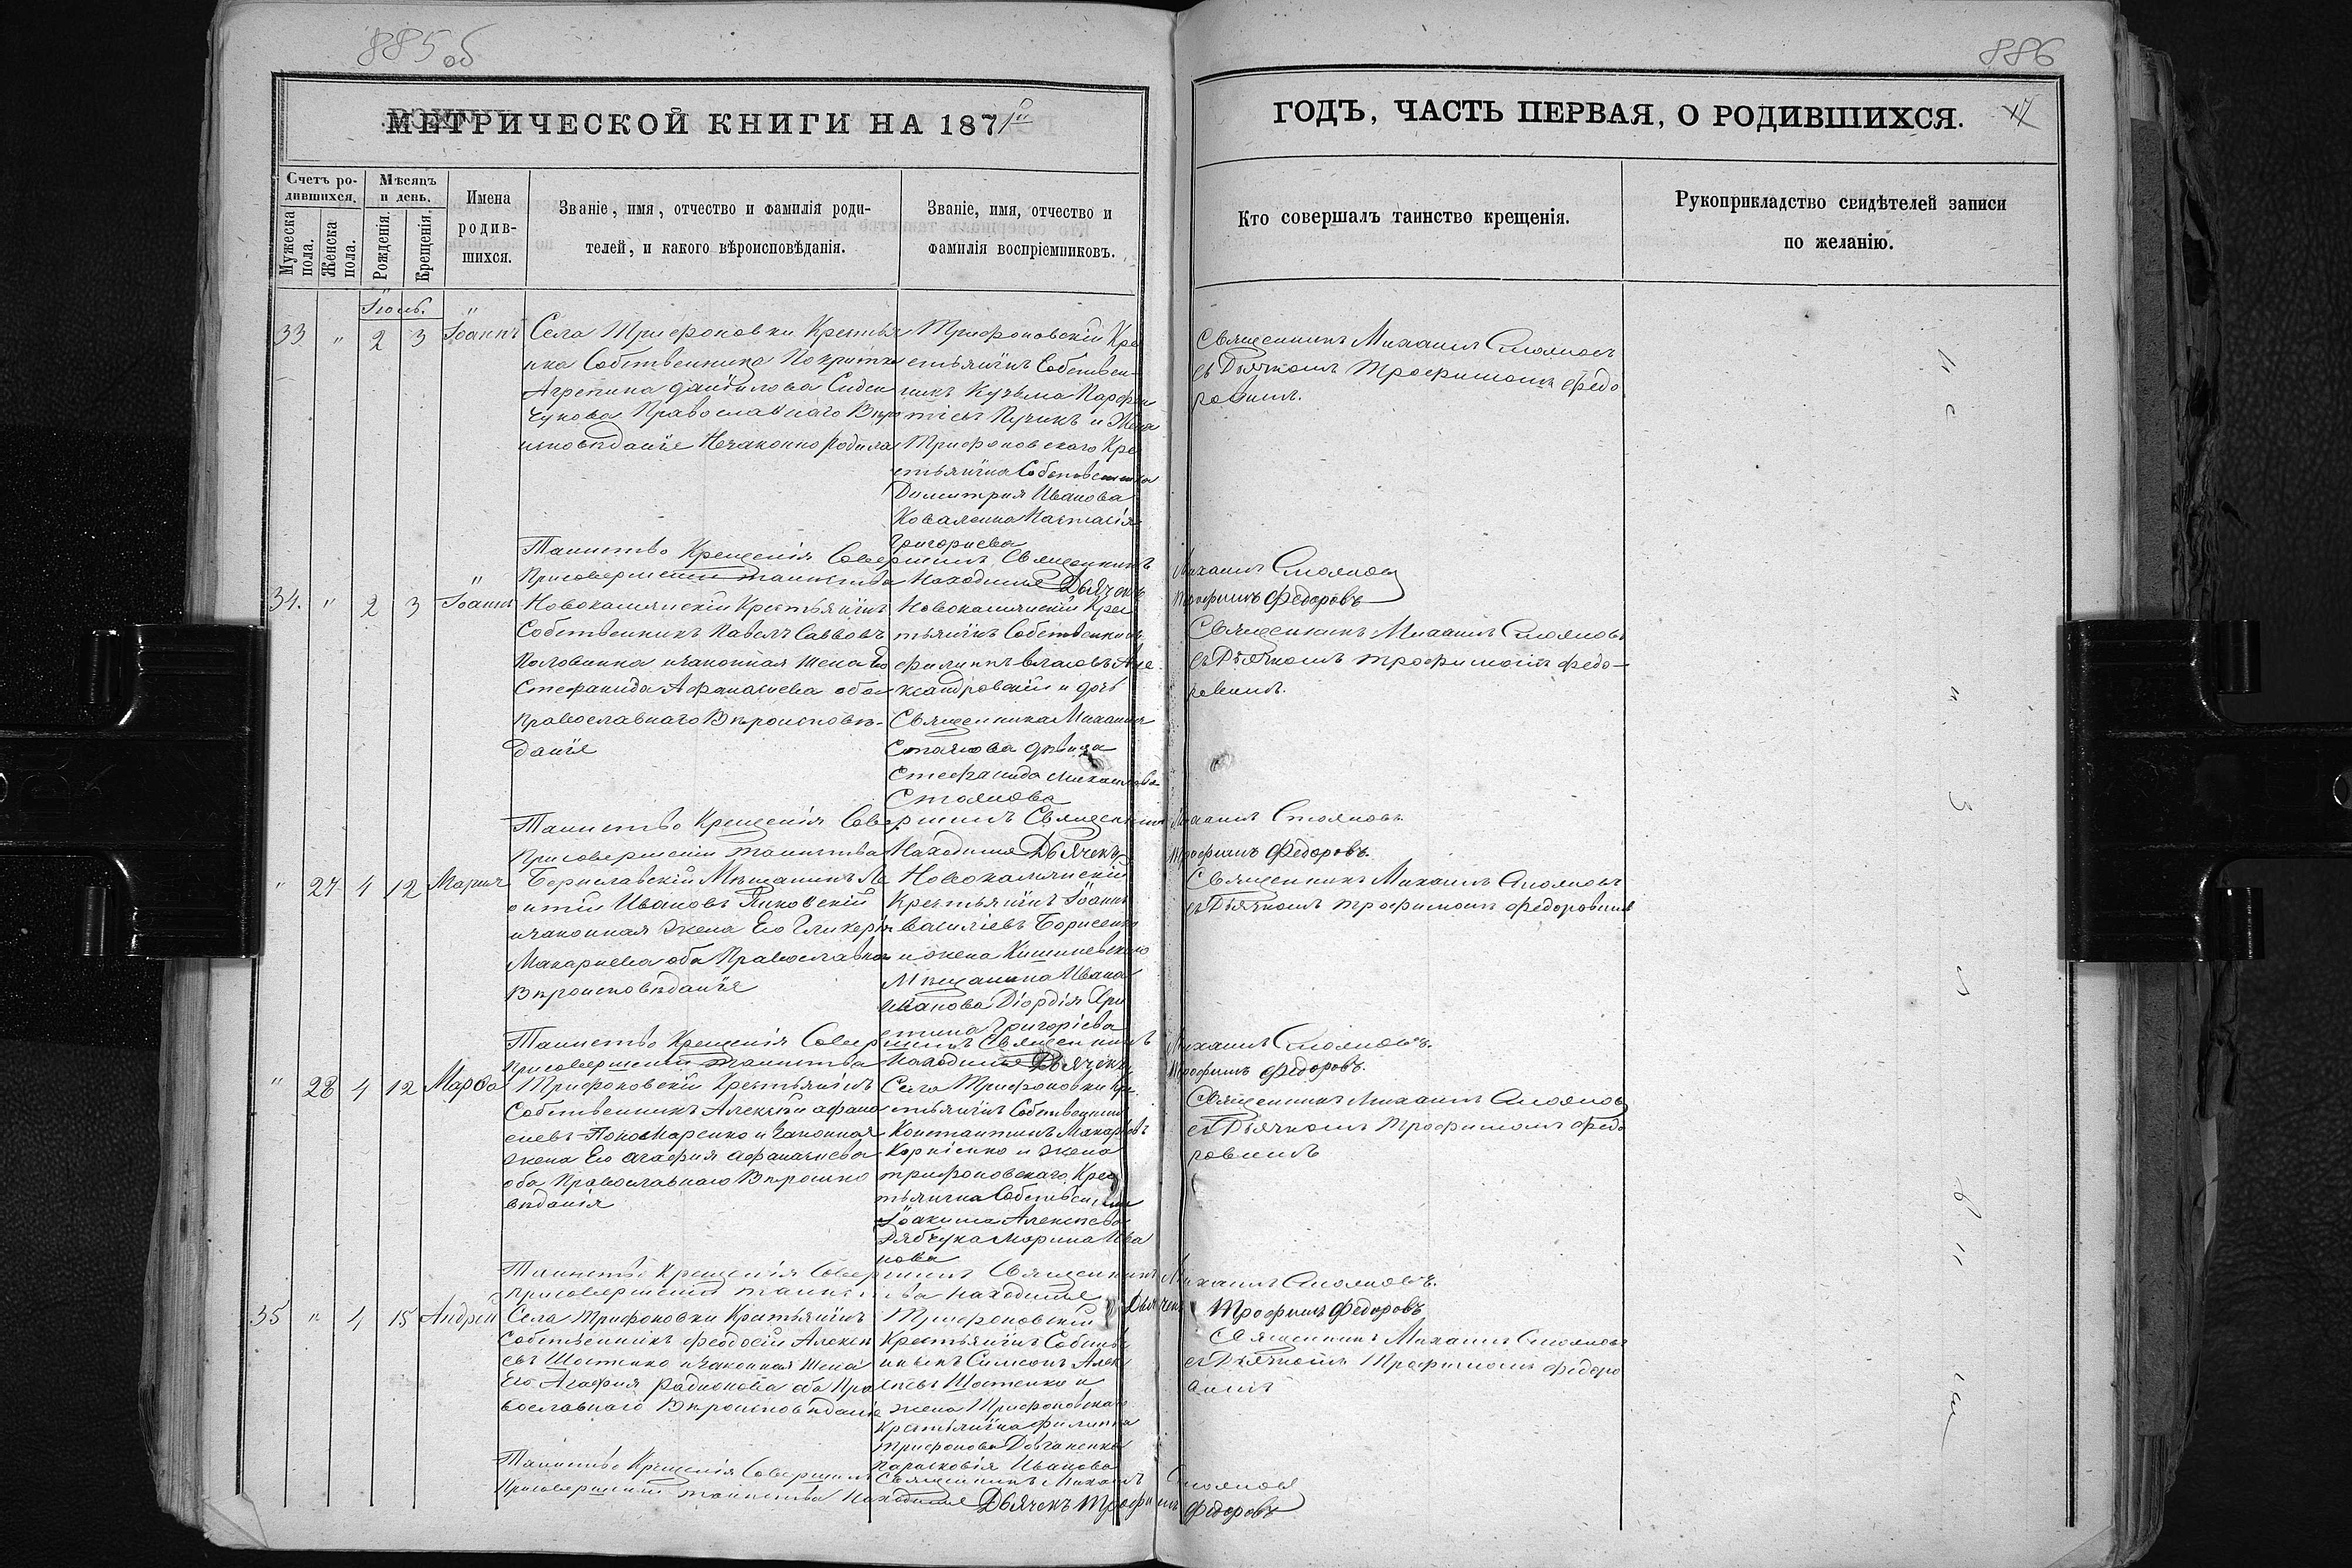 885 об
886
МЕТРИЧЕСКОЙ КНИГИ НА 1871й
ГОДЪ, ЧАСТЬ ПЕРВАЯ, О РОДИВШИХСЯ.
17
Счетъ ро-
дившихся.
Мужеска пола.
Женска пола.
Мѣсяцъ
и день.
Рожденія.
Крещенія.
Имена
родив-
шихся.
Званіе, имя, отчество и фамилія роди-
телей, и какого вѣроисповѣданія.
Званіе, имя, отчество и
фамилія воспріемниковъ.
Кто совершалъ таинство крещенія.
Рукоприкладство свидѣтелей записи
по желанію.
33 " 2 3 Іоаннъ
Села Трифоновки Крестья
нка Собственница
Агрепина Даніилова
Православнаго Вѣро
исповѣданія Незаконно родила
Трифоновскій Кре
стьянинъ Собствен
никъ Кузьма
и Жена
Трифоновскаго Кре
стьянина Собственника
Димитрия Иванова
Коваленка Настасія
Григориева
Священникъ Михаилъ Стояновъ
съ Дьячкомъ Трофимомъ Федо
ровимъ.
Таинство Крещенія Совершилъ Священникъ Михаилъ Стояновъ
Присовершении таинства Находился Дьячекъ Трофимъ Федоровъ
34. " 2 3 Іоаннъ
Новокамянскій Крестьянинъ
Собственникъ Павелъ Саввовъ
Половинка изаконная жена Его
Стефанида Афанасиева оба
православнаго Вѣроисповѣ-
данія
Новокамянскій Крес
тьянинъ Собственникъ
Филиппъ Власовъ Але
ксандровскій и дочь
Священника Михаила
Стоянова дѣвица
Стефанида Михаилова
Стоянова
Священникъ Михаилъ Стояновъ
съ Дьячкомъ Трофимомъ Федо-
ровимъ.
Таинство Крещенія Совершилъ Священникъ Михаилъ Стояновъ
Присовершении таинства Находился Дьячекъ Трофимъ Федоровъ.
" 27 4 12 Мария
Бериславскій Мѣщанинъ Ле
онтій Ивановъ
изаконная Жена Его Гликерія
Макариева оба Православнаго
Вѣроисповѣданія
Новокамянскій
Крестьянинъ Іоаннъ
Василіевъ Борисенко
и жена Кишиневскаго
Мѣщанина Ивана
Иванова Діордія Хри
стина Григоріева
Священникъ Михаилъ Стояновъ
съ Дьячкомъ Трофимомъ Федоровимъ
Таинство Крещенія Совершилъ Священникъ Михаилъ Стояновъ.
Присовершении таинства Находился Дьячекъ Трофимъ Федоровъ.
" 28 4 12 Марѳа
Трифоновскій Крестьянинъ
Собственникъ Алексѣй Афана
сиевъ Пономаренко и Законная
жена Его Агафия Афанасиева
оба Православнаго Вѣроиспо
вѣданія
Села Трифоновки Кре
стьянинъ Собственникъ
Константинъ Макаріовъ
Корніенко и жена
трифоновскаго Крес
тьянина Собственника
Іоакима Алексѣева
Рябчука Марина Ива
нова
Священникъ Михаилъ Стояновъ
съ Дьячкомъ Трофимомъ Федо
ровимъ
Таинство Крещенія Совершилъ Священникъ Михаилъ Стояновъ.
Присовершении таинства находился Дьячекъ Трофимъ Федоровъ
35 " 4 15 Андрей
Села Трифоновки Крестьянинъ
Собственникъ Феодосій Алексѣ
евъ Шостенко изаконная Жена
Его Агафия Радионова оба Пра
вославнаго Вѣроисповѣданія
Трифоновскій
Крестьянинъ Собстве
нникъ Симеонъ Алек
сѣевъ Шостенко и
жена Трифоновскаго
Крестьянина Филиппа
Трифонова Довганенка
Парасковія Иванова
Священникъ Михаилъ Стояновъ
съ Дьячкомъ Трофимомъ Федоро
вимъ
Таинство Крещенія Совершилъ Священникъ Михаилъ Стояновъ
Присовершении таинства Находился Дьячекъ Трофимъ Федоровъ